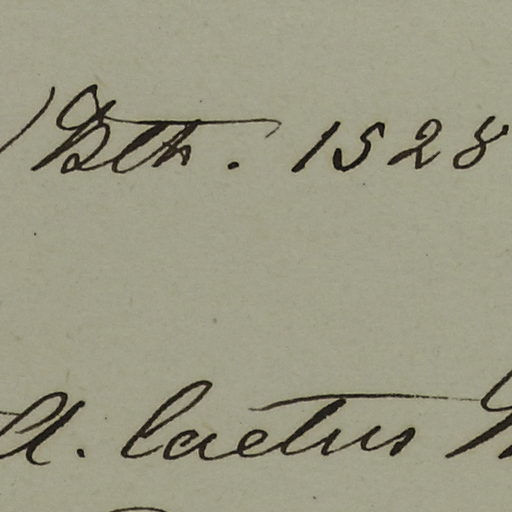 ) Bth. 1528
A. laetus